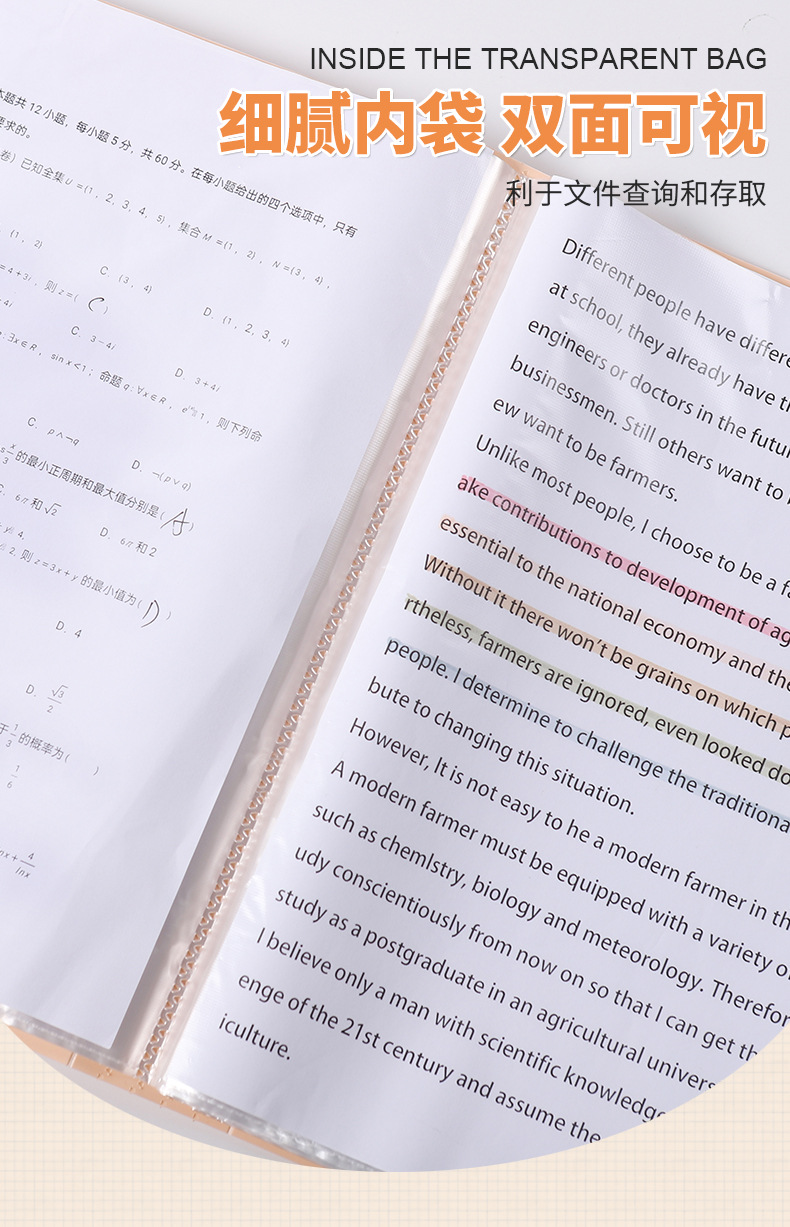 INSIDE THE TRANSPARENT BAG
细腻内袋 双面可视
利于文件查询和存取
本题共12小题，每小题5分，共60分。在每小题给出的四个选项中，只有
要求的。
卷）已知全集U={1，2，3，4，5}，集合M={1，2}，N={3，4}，
{1，2}
C. {3，4}
D. {1，2，3，4}
=4+3i，则z=( C )
C. 3-4i
D. 3+4i
:∃x∈R，sinx<1；命题q:∀x∈R，
则下列命
C. p∧¬q
D. ¬(p∨q)
的最小正周期和最大值分别是(A)
6π和√2
D. 6π和2
则z=3x+y的最小值为(D)
D. 4
D. √3/2
的概率为( )
1/6
Different people have differe
at school, they already have th
engineers or doctors in the futur
businessmen. Still others want to
ew want to be farmers.
Unlike most people, I choose to be a fa
ake contributions to development of ag
essential to the national economy and the
Without it there won't be grains on which p
rtheless, farmers are ignored, even looked do
people. I determine to challenge the traditiona
bute to changing this situation.
However, It is not easy to he a modern farmer in th
A modern farmer must be equipped with a variety o
such as chemlstry, biology and meteorology. Therefor
udy conscientiously from now on so that I can get th
study as a postgraduate in an agricultural univers
I believe only a man with scientific knowledge
enge of the 21st century and assume the
iculture.